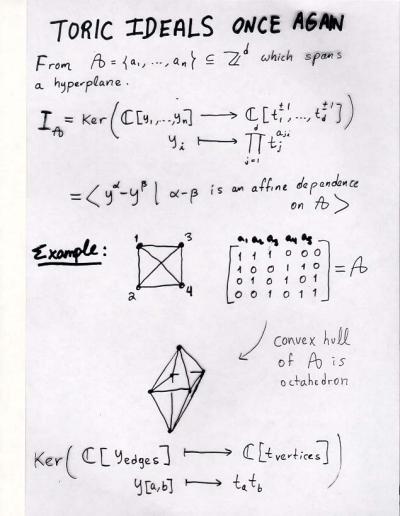 TORIC IDEALS ONCE AGAIN
From A = {a₁, ..., aₙ} ⊆ ℤᵈ which spans
a hyperplane.
I_A = Ker ( ℂ[y₁, ..., yₙ] ⟶ ℂ[t₁^{±1}, ..., t_d^{±1}] )
yᵢ ⟼ ∏_{j=1}^{d} t_j^{a_{ji}}
= < y^α - y^β | α-β is an affine dependence
on A >
Example:
1 3
2 4
a₁ a₂ a₃ a₄ a₅
1 1 1 0 0 0
1 0 0 1 1 0
0 1 0 1 0 1
0 0 1 0 1 1
= A
convex hull
of A is
octahedron
Ker ( ℂ[y_edges] ⟼ ℂ[t_vertices] )
y[a,b] ⟼ t_a t_b